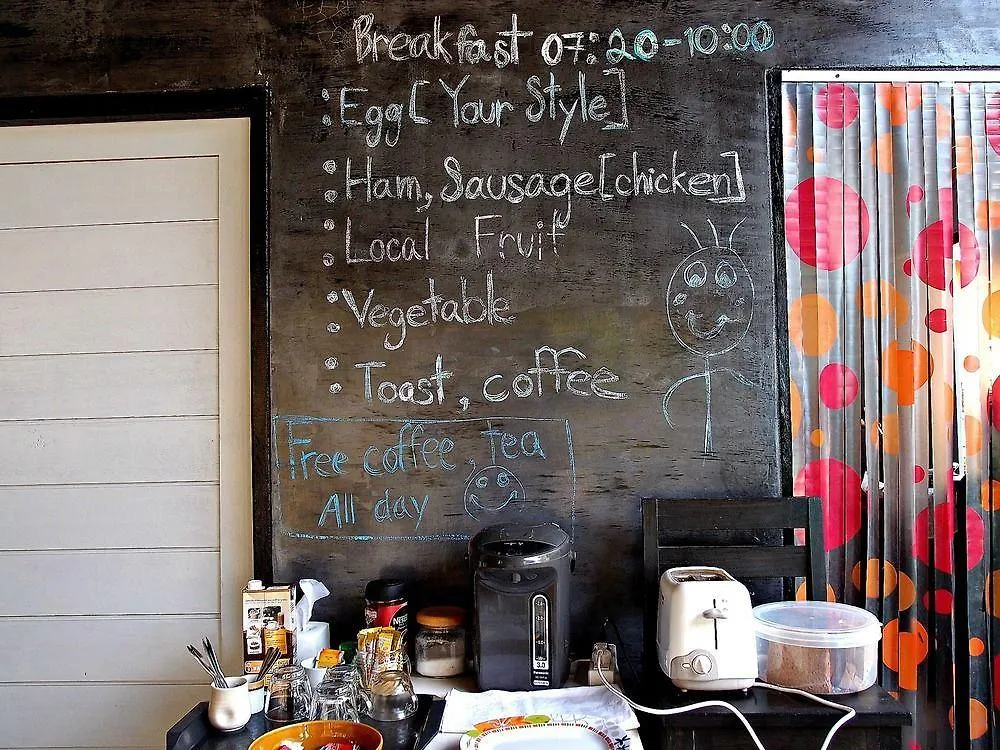 Breakfast 07:20-10:00
: Egg [Your Style]
: Ham, Sausage [chicken]
: Local Fruit
: Vegetable
: Toast, coffee
Free coffee, Tea
All day